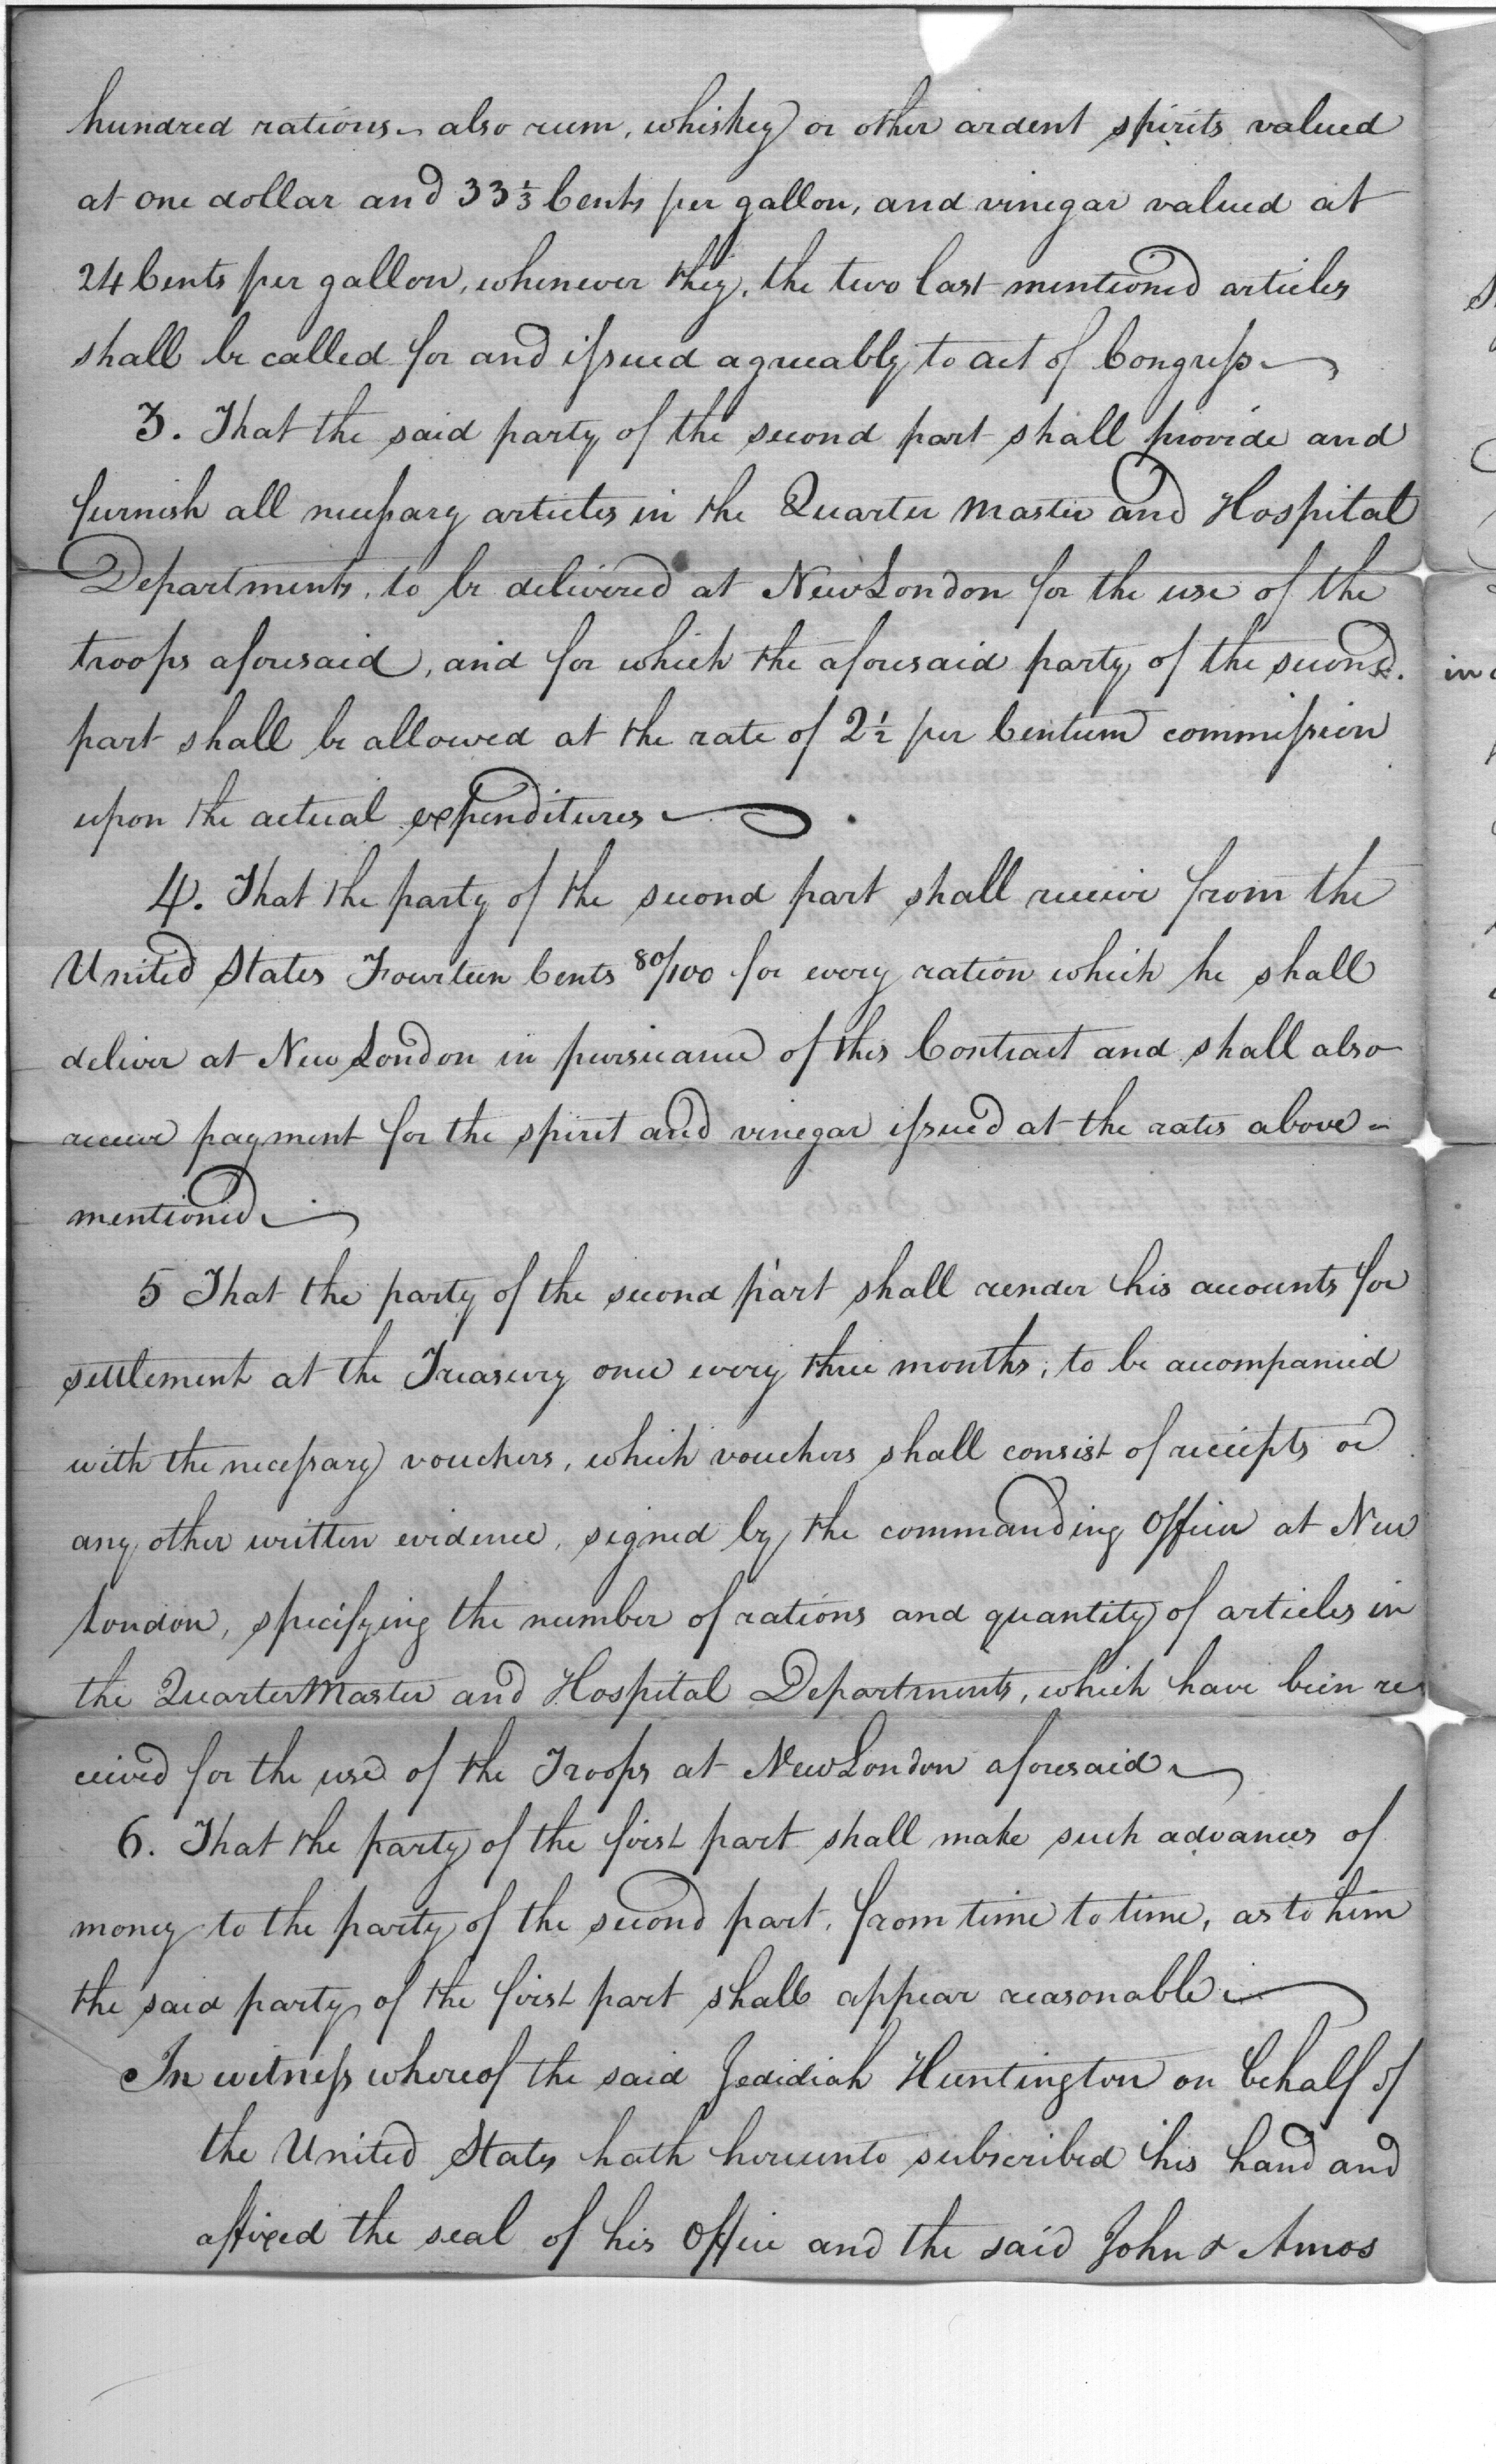 hundred rations - also rum, whiskey or other ardent spirits valued
at one dollar and 33⅓ Cents per gallon, and vinegar valued at
24 Cents per gallon, whenever they, the two last mentioned articles
shall be called for and issued agreeably to act of Congress -
3. That the said party of the second part shall provide and
furnish all necessary articles in the Quarter Master and Hospital
Departments, to be delivered at New London for the use of the
troops aforesaid, and for which the aforesaid party of the second
part shall be allowed at the rate of 2½ per Centum commission
upon the actual expenditures -
4. That the party of the second part shall receive from the
United States Fourteen Cents 80/100 for every ration which he shall
deliver at New London in pursuance of this Contract and shall also
receive payment for the spirit and vinegar issued at the rates above-
mentioned. -
5 That the party of the second part shall render his accounts for
settlement at the Treasury once every three months, to be accompanied
with the necessary vouchers, which vouchers shall consist of receipts or
any other written evidence, signed by the commanding Officer at New
London, specifying the number of rations and quantity of articles in
the Quarter Master and Hospital Departments, which have been re
in
ceived for the use of the Troops at New London aforesaid -
6. That the party of the first part shall make such advances of
money to the party of the second part, from time to time, as to him
the said party of the first part shall appear reasonable: -
In witness whereof the said Jedidiah Huntington on behalf of
the United States hath hereunto subscribed his hand and
affixed the seal of his Office and the said John & Amos